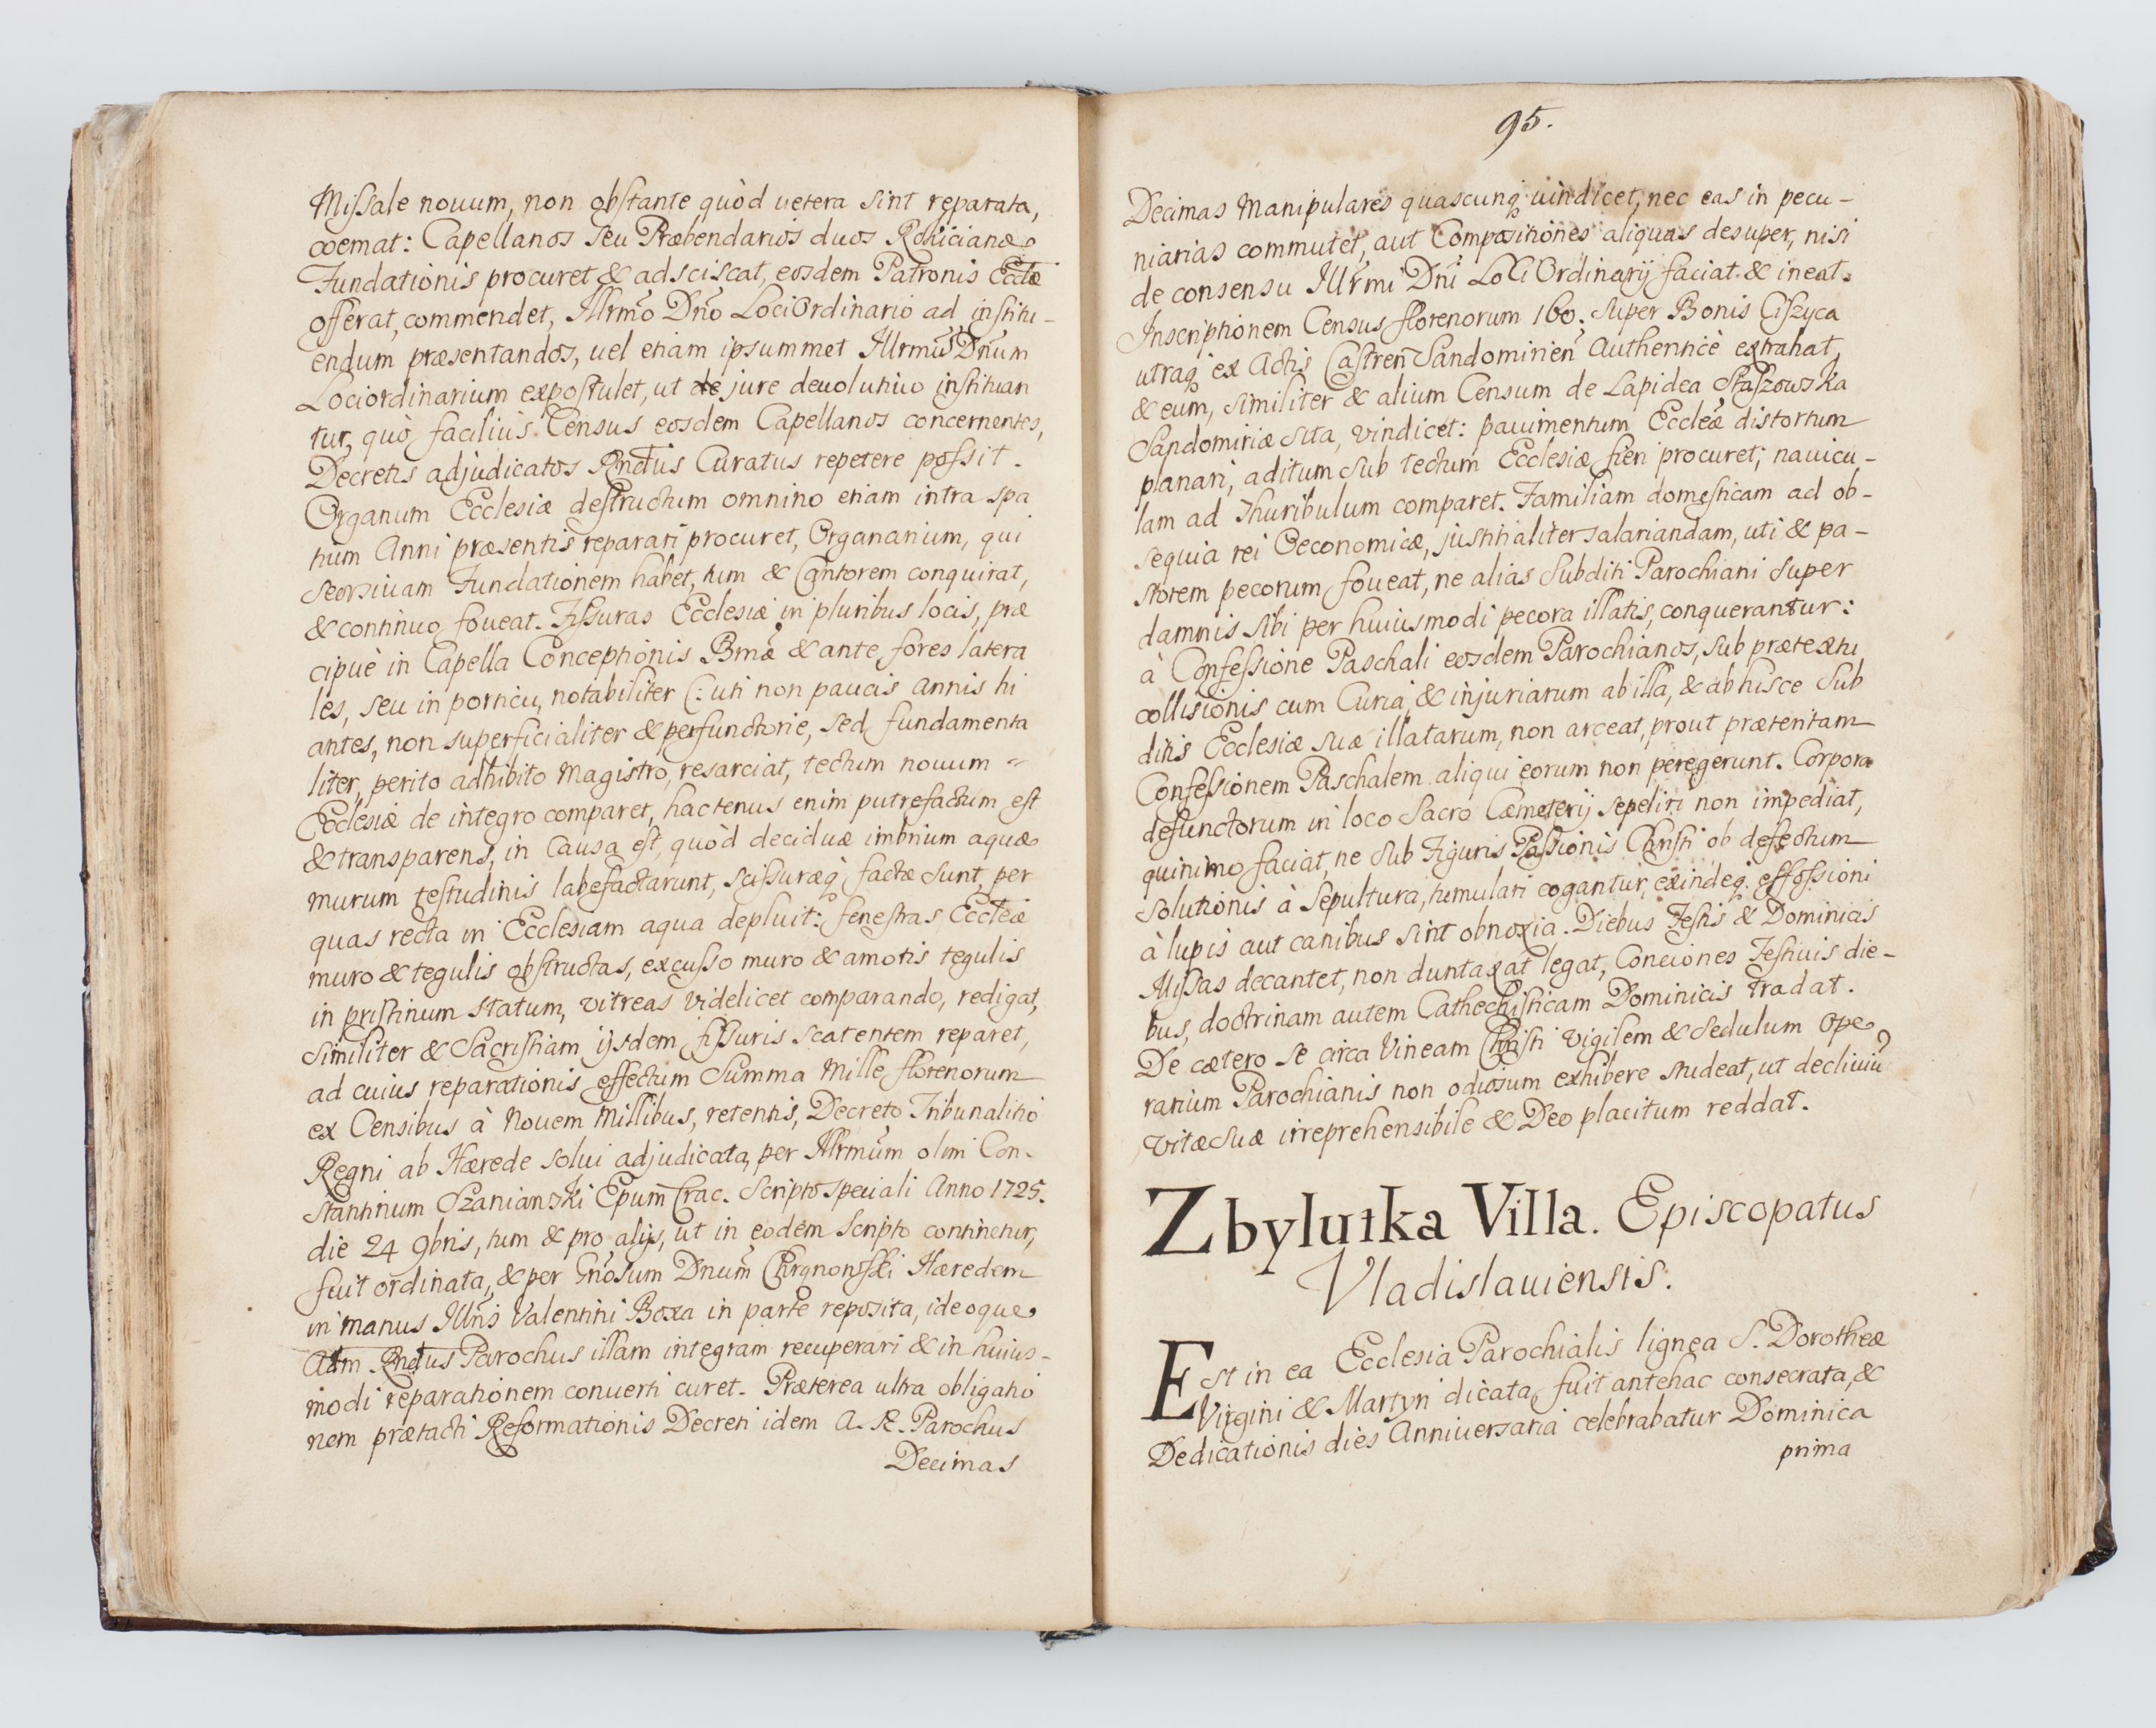 Missale nouum, non obstante quòd uetera sint reparata,
coemat: Capellanos seu Præbendarios duos Rokicianæ
Fundationis procuret & adsciscat, eosdem Patronis Eccłæ
offerat, commendet, Illrmo Dno Loci Ordinario ad institu-
endum præsentandos, uel etiam ipsummet Illrmu Dnum
Lociordinarium expostulet, ut de jure deuolutiuo instituan
tur, quò faciliùs Census eosdem Capellanos concernentes,
Decretis adjudicatos Rndus Curatus repetere possit.
Organum Ecclesiæ destructum omnino etiam intra spa
tium Anni præsentis reparari procuret, Organarium, qui
seorsiuam Fundationem habet, tum & Cantorem conquirat,
& continuo foueat. Fissuras Ecclesiæ in pluribus locis, præ
cipuè in Capella Conceptionis Bmæ & ante fores latera
les, seu in porticu, notabiliter (: uti non paucis annis hi
antes, non superficialiter & perfunctorie, sed fundamenta
liter, perito adhibito Magistro, resarciat, tectum nouum
Ecclesiæ de integro comparet, hactenus enim putrefactum est
& transparens, in causa est, quòd deciduæ imbrium aquæ
murum testudinis labefactarunt, scissuræq factæ sunt, per
quas recta in Ecclesiam aqua depluit: fenestras Eccleiæ
muro & tegulis obstructas, excusso muro & amotis tegulis
in pristinum statum, vitreas videlicet comparando, redigat,
similiter & Sacristiam ijsdem fissuris scatentem reparet,
ad cuius reparationis effectum Summa Mille florenorum
ex Censibus à Nouem Millibus, retentis, Decreto Tribunalitio
Regni ab Hærede solui adjudicata, per Illrmum olim Con-
stantinum Szanianski Epum Crac. Scripto speciali Anno 1725.
die 24 9bris, tum & pro alijs, ut in eodem Scripto continetur,
fuit ordinata, & per Gnosum Dnum Hæredem
in manus Illris Valentini Boxa in parte reposita, ideoque
Adm. Rndus Parochus illam integram recuperari & in huius-
modi reparationem conuerti curet. Præterea ultra obligatio
nem prætacti Reformationis Decreti idem A. R. Parochus
Decimas
95.
Decimas Manipulares quascunq uindicet, nec eas in pecu-
niarias commutet, aut Compositiones aliquas desuper, nisi
de consensu Illrmi Dni Loci Ordinarij faciat & ineat.
Inscriptionem Census florenorum 160. super Bonis Ciszyca
utraq ex Actis Castren Sandomirien Authenticè extrahat,
& eum, similiter & alium Censum de Lapidea Staszowska
Sandomiriæ sita, vindicet: pauimentum Eccleæ distortum
planari, aditum sub tectum Ecclesiæ fieri procuret; nauicu-
lam ad Thuribulum comparet. Familiam domesticam ad ob-
sequia rei Oeconomicæ, justitialiter salariandam, uti & pa-
storem pecorum foueat, ne alias Subditi Parochiani super
damnis sibi per huiusmodi pecora illatis, conquerantur:
à Confessione Paschali eosdem Parochianos, sub prætextu
collisionis cum Curia, & injuriarum ab illa, & ab hisce sub
ditis Ecclesiæ suæ illatarum, non arceat, prout præteritam
Confessionem Paschalem aliqui eorum non peregerunt. Corpora
defunctorum in loco Sacro Cæmeterij sepeliri non impediat,
quinimo faciat, ne sub Figuris Passionis Christi ob defectum
solutionis à sepultura, tumulari cogantur, exindeq effossioni
à lupis aut canibus sint obnoxia. Diebus Festis & Dominicis
Missas decantet, non duntaxat legat, Conciones Festiuis die-
bus, doctrinam autem Cathechisticam Dominicis tradat.
De cætero se circa Vineam Christi vigilem & sedulum ope
rarium Parochianis non odiosum exhibere studeat, ut decliuiu
vitæ suæ irreprehensibile & Deo placitum reddat.
Zbylutka Villa. Episcopatus
Vladislauiensis.
Est in ea Ecclesia Parochialis lignea S. Dorotheæ
Virgini & Martyri dicata, fuit antehac consecrata, &
Dedicationis dies Anniuersaria celebrabatur Dominica
prima